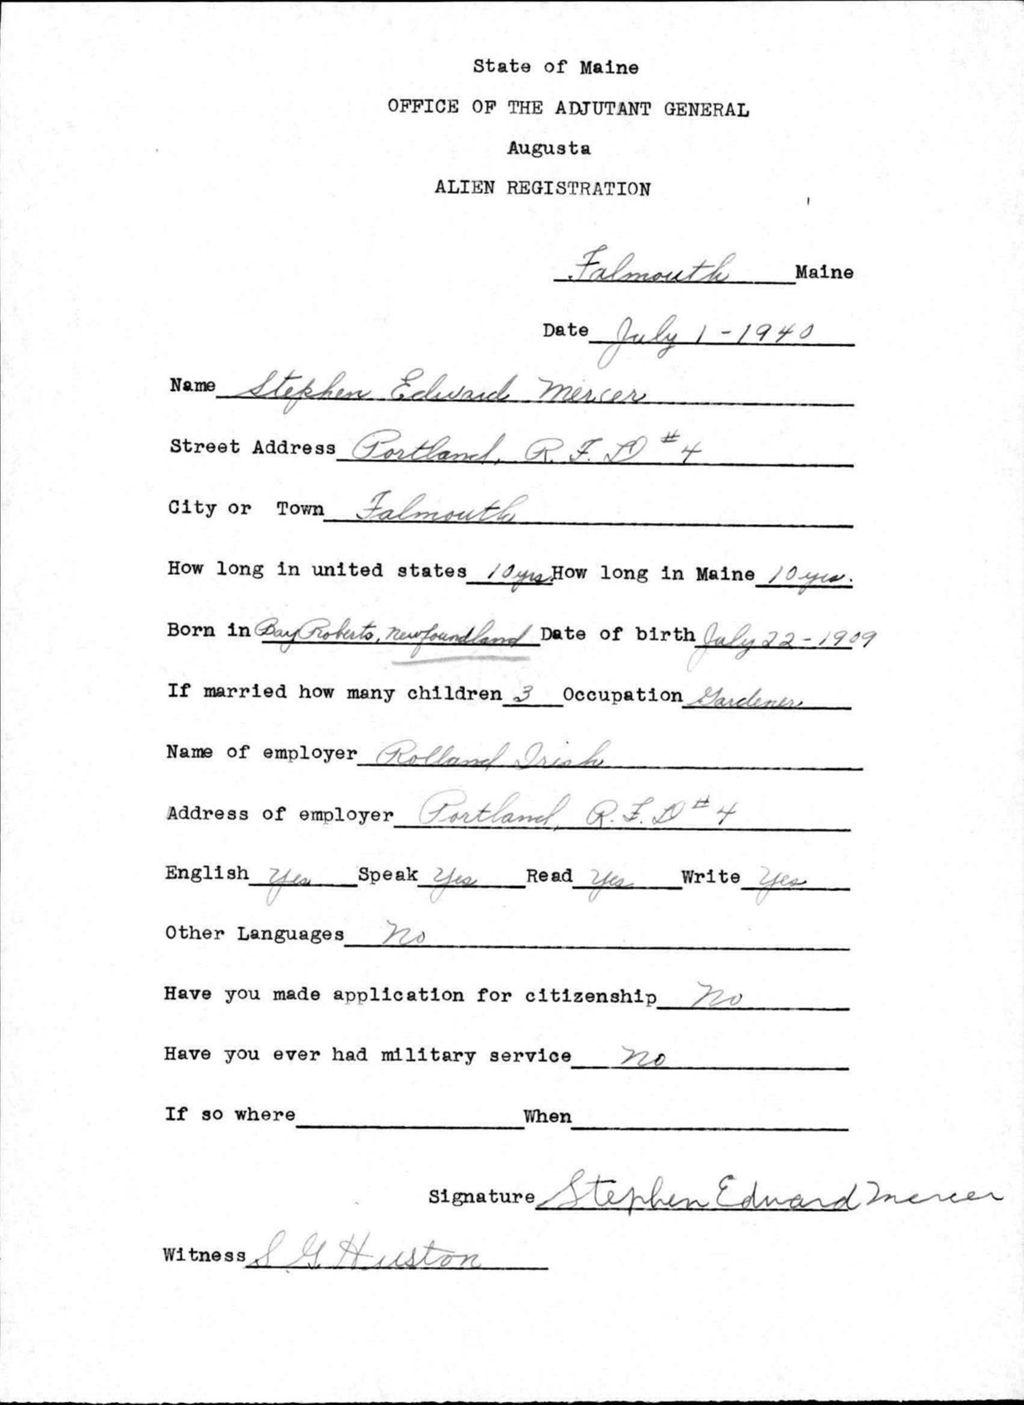 State of Maine
OFFICE OF THE ADJUTANT GENERAL
Augusta
ALIEN REGISTRATION
Falmouth Maine
Date July 1-1940
Name Stephen Edward Mercer
Street Address Portland, R.F.D #4
City or Town Falmouth
How long in united states 10 yrs How long in Maine 10 yrs.
Born in Bay Roberts, Newfoundland Date of birth July 22-1909
If married how many children 3 Occupation Gardener
Name of employer Rolland Irish
Address of employer Portland, R.F.D #4
English Yes Speak Yes Read Yes Write Yes
Other Languages No
Have you made application for citizenship No
Have you ever had military service No
If so where When
Signature Stephen Edward Mercer
Witness S G Huston